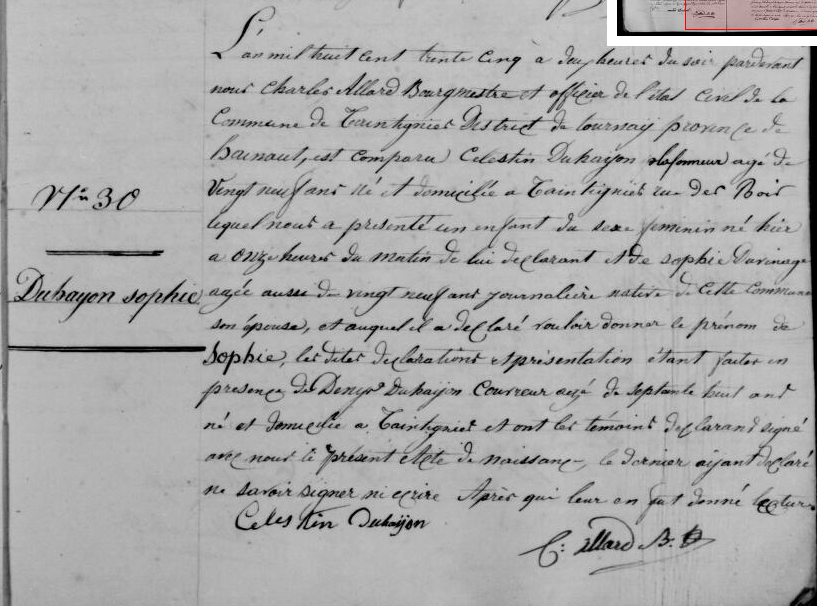 L'an mil huit cent trente cinq a deux heures du soir pardevant
nous Charles Allard Bourgmestre et officier de l'état civil de la
Commune de Taintignies District de tournay province de
hainaut, est comparu Celestin Duhayon plafonneur agé de
Vingt neuf ans né et domicilié a Taintignies rue des Bois
N.° 30
lequel nous a présenté un enfant du sexe feminin né hier
a onze heures du matin de lui declarant et de sophie Duvinage
Duhayon sophie
agée aussi de vingt neuf ans journalière native de Cette Commune
son épouse, et auquel il a declaré vouloir donner le prénom de
Sophie, les dites declarations et présentation étant faites en
presence de Denys Duhayon Couvreur agé de septante huit ans
né et domicilié a Taintignies et ont les témoins declarand signé
avec nous le présent Acte de naissance, le dernier aijant declaré
ne savoir signer ni ecrire Après qui leur en fut donné lecture
Celestin Duhaÿon
C: allard B.